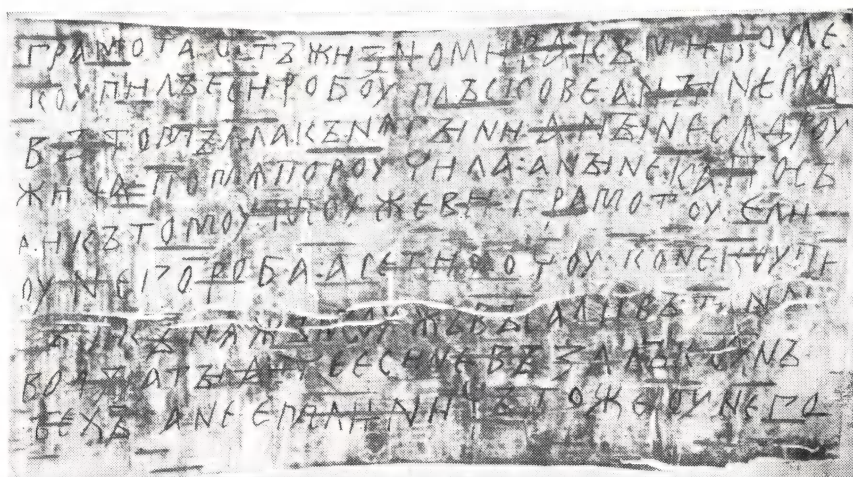 грамота : ѡтъ жизномира : къ микоуле :
коупилъ еси : робоу : плъскове : а ныне мѧ :
въ томъ : ѧла кънѧгыни : а ныне сѧ дроу
жина : по мѧ пороучила : а ныне ка : посъ
ли къ томоу : моужеви : грамотоу : е ли
оу него роба : а се ти хочоу : коне коупи
въ : и кънѧжъ моужъ въсадивъ : та на съ
воды : а ты атче еси не възалъ коунъ :
техъ : а не емли : ничъто же оу него :